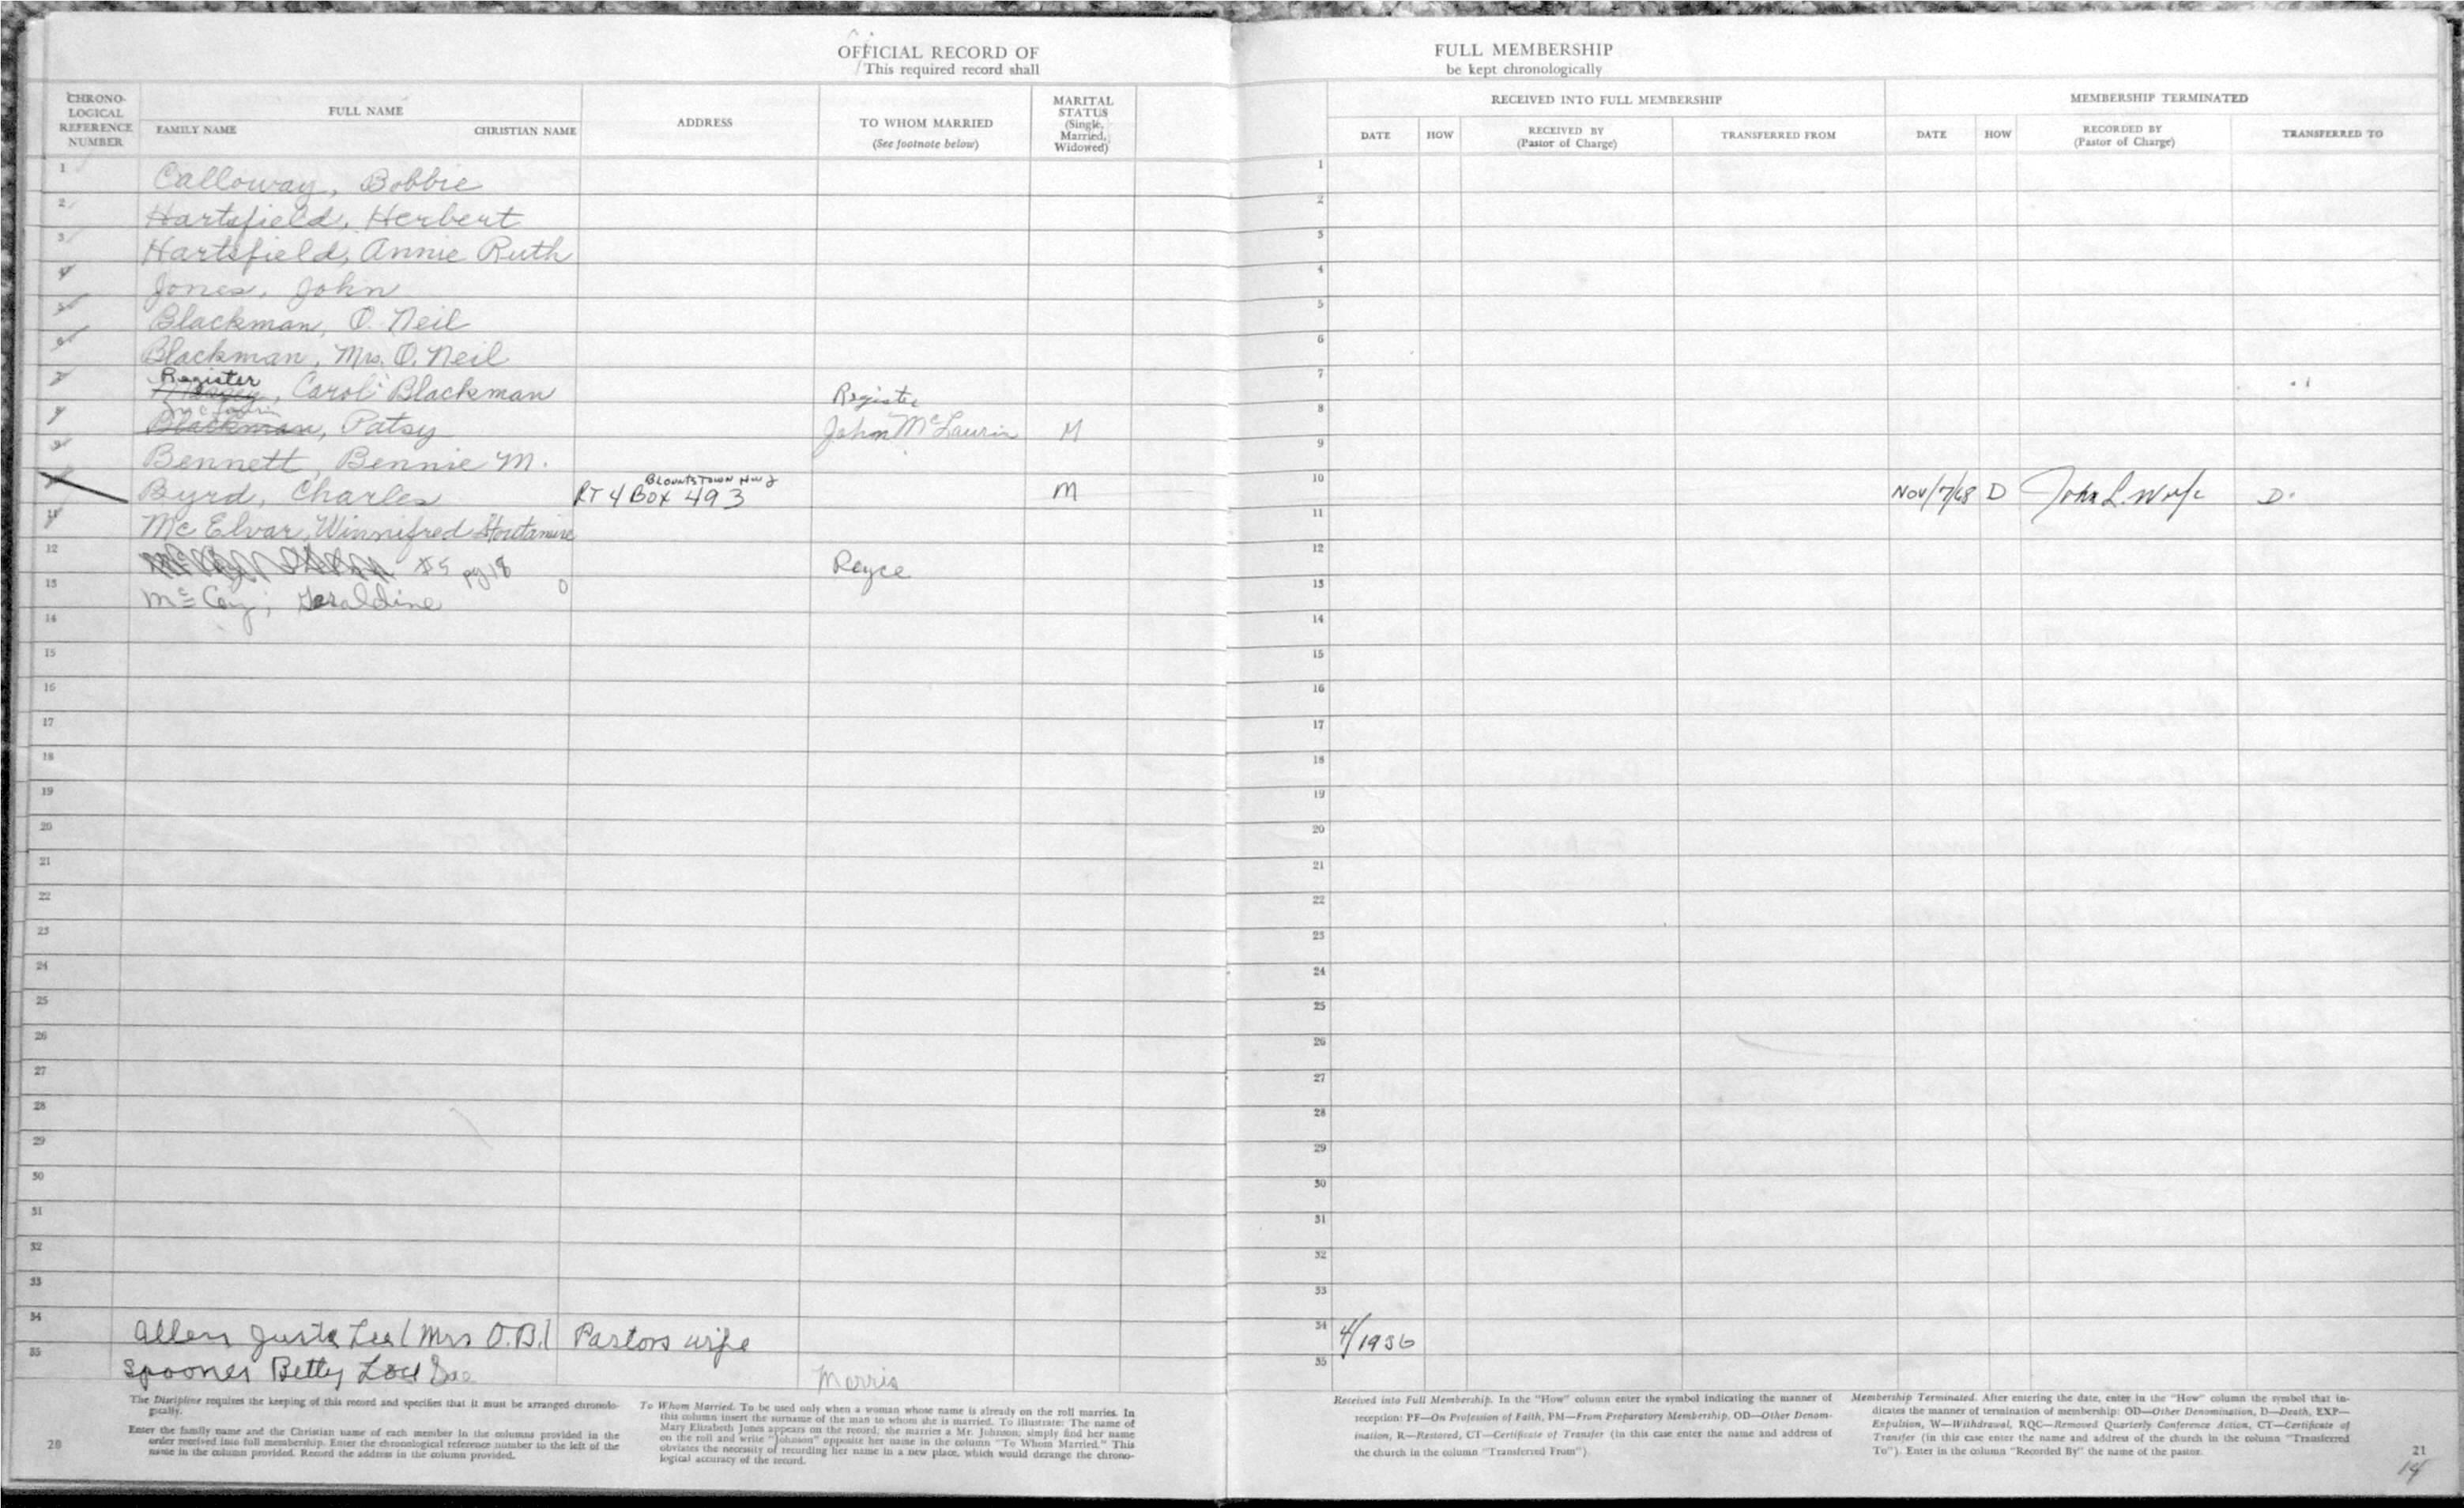 OFFICIAL RECORD OF
This required record shall
CHRONO-
LOGICAL
REFERENCE
NUMBER
FULL NAME
FAMILY NAME CHRISTIAN NAME
ADDRESS
TO WHOM MARRIED
(See footnote below)
MARITAL
STATUS
(Single,
Married,
Widowed)
1 Calloway, Bobbie
2 Hartsfield, Herbert
3 Hartsfield, Annie Ruth
4 Jones, John
5 Blackman, O. Neil
6 Blackman, Mrs. O. Neil
Register
7 , Carol Blackman Register
8 Blackman, Patsy John McLaurin M
9 Bennett, Bennie M.
BLOUNTSTOWN HWY
10 Byrd, Charles RT 4 BOX 493 M
11 Mc Elvar, Winnifred Stoutamire
12 #5 pg 18 Royce
13 McCoy, Geraldine 0
14
15
16
17
18
19
20
21
22
23
24
25
26
27
28
29
30
31
32
33
34 Allen Lee (Mrs O.B.) Pastors wife
35 Spooner Betty Lou Sue Morris
The Discipline requires the keeping of this record and specifies that it must be arranged chronolo-
gically.
Enter the family name and the Christian name of each member in the columns provided in the
order received into full membership. Enter the chronological reference number to the left of the
name in the column provided. Record the address in the column provided.
To Whom Married. To be used only when a woman whose name is already on the roll marries. In
this column insert the surname of the man to whom she is married. To illustrate: The name of
Mary Elizabeth Jones appears on the record; she marries a Mr. Johnson; simply find her name
on the roll and write "Johnson" opposite her name in the column "To Whom Married." This
obviates the necessity of recording her name in a new place, which would derange the chrono-
logical accuracy of the record.
20
FULL MEMBERSHIP
be kept chronologically
RECEIVED INTO FULL MEMBERSHIP
DATE HOW
RECEIVED BY
(Pastor of Charge)
TRANSFERRED FROM
MEMBERSHIP TERMINATED
DATE HOW
RECORDED BY
(Pastor of Charge)
TRANSFERRED TO
1
2
3
4
5
6
7
8
9
10 Nov/7/68 D John L. Wolfe D.
11
12
13
14
15
16
17
18
19
20
21
22
23
24
25
26
27
28
29
30
31
32
33
34 4/1956
35
Received into Full Membership. In the "How" column enter the symbol indicating the manner of
reception: PF—On Profession of Faith, PM—From Preparatory Membership, OD—Other Denom-
ination, R—Restored, CT—Certificate of Transfer (in this case enter the name and address of
the church in the column "Transferred From").
Membership Terminated. After entering the date, enter in the "How" column the symbol that in-
dicates the manner of termination of membership: OD—Other Denomination, D—Death, EXP—
Expulsion, W—Withdrawal, RQC—Removed Quarterly Conference Action, CT—Certificate of
Transfer (in this case enter the name and address of the church in the column "Transferred
To"). Enter in the column "Recorded By" the name of the pastor.
21